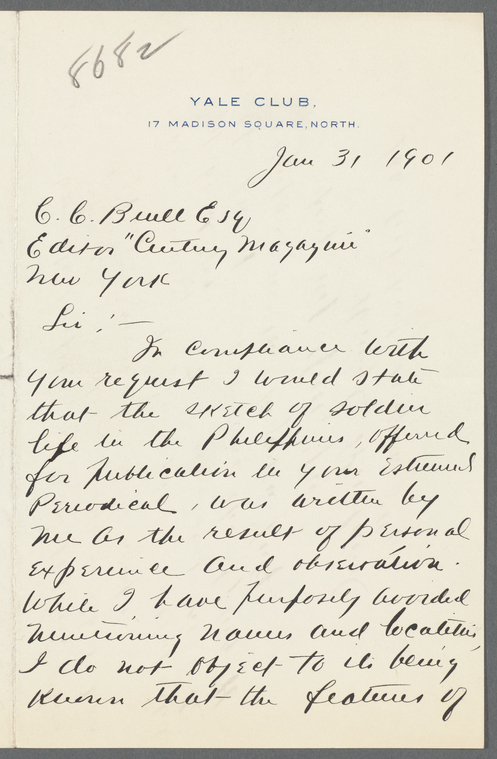 8682
YALE CLUB,
17 MADISON SQUARE, NORTH.
Jan 31 1901
C. C. Buell Esq
Editor "Century Magazine"
New York
Sir:—
In compliance with
your request I would state
that the sketch of soldier
life in the Philippines, offered
for publication in your esteemed
Periodical, was written by
me as the result of personal
experience and observation.
While I have purposely avoided
mentioning names and localities,
I do not object to its being
known that the features of